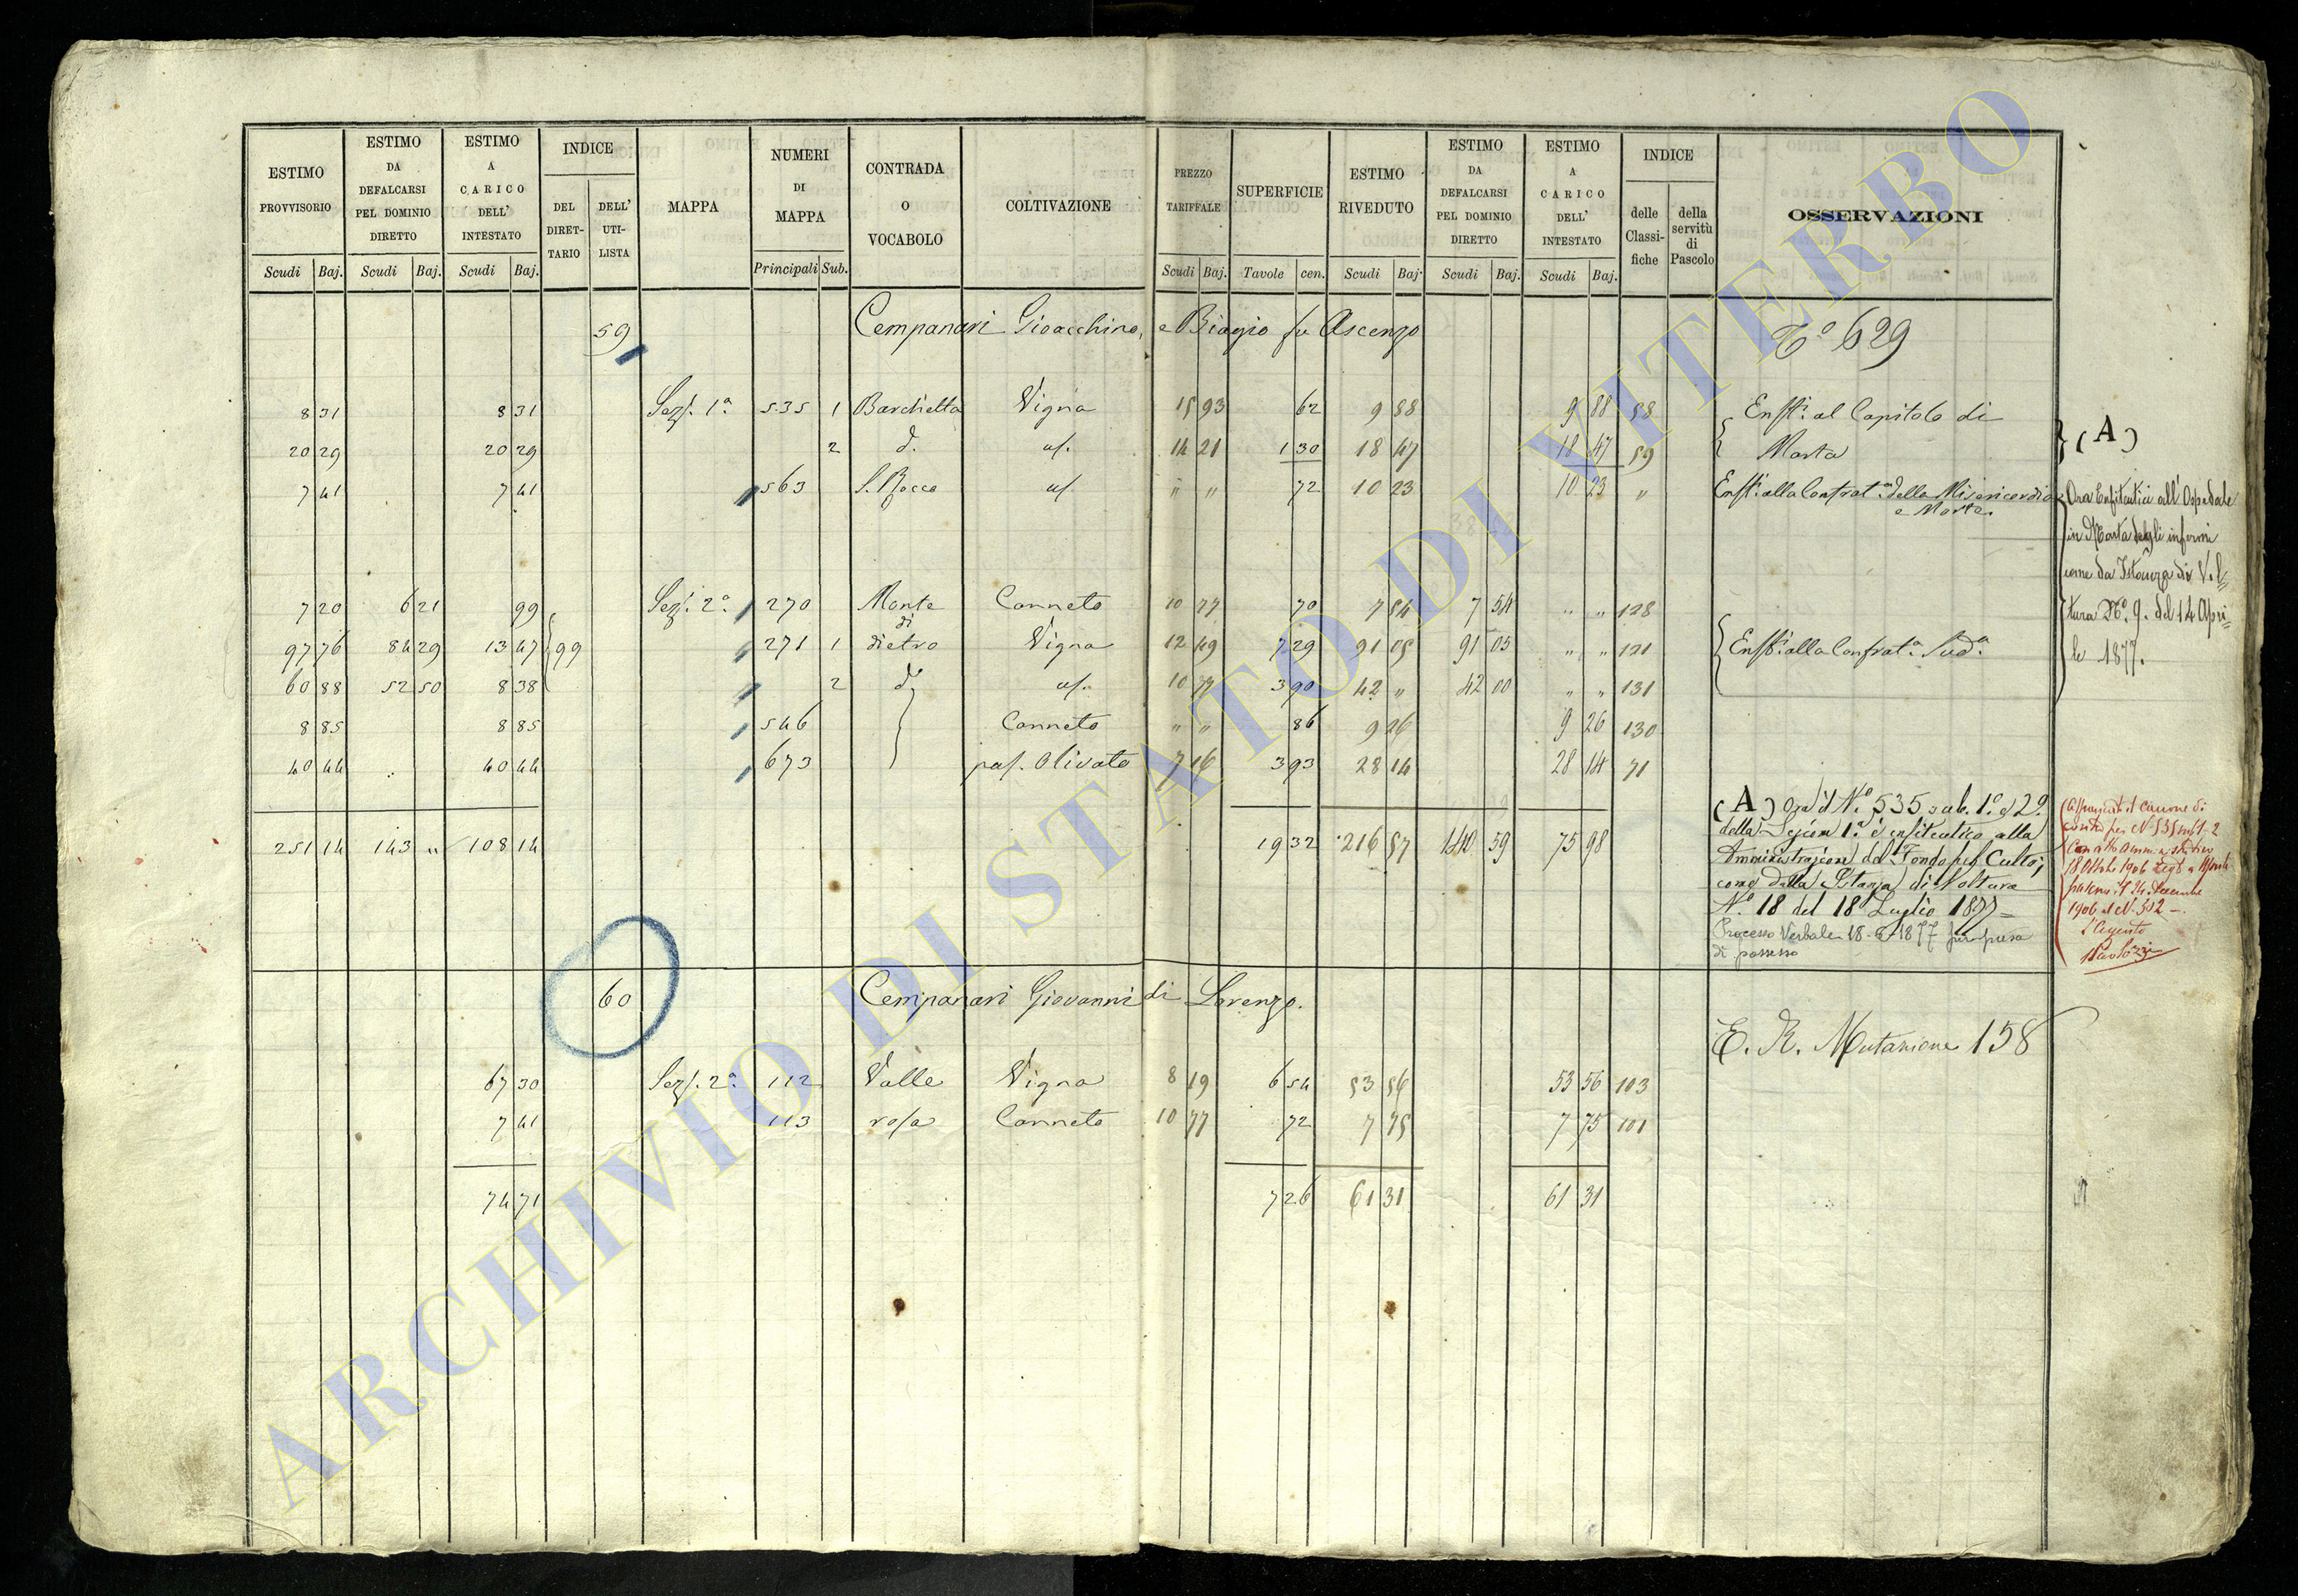 ESTIMO PROVVISORIO | ESTIMO DA DEFALCARSI PEL DOMINIO DIRETTO | ESTIMO A CARICO DELL' INTESTATO | INDICE | MAPPA | NUMERI DI MAPPA | CONTRADA O VOCABOLO | COLTIVAZIONE | PREZZO TARIFFALE | SUPERFICIE | ESTIMO RIVEDUTO | ESTIMO DA DEFALCARSI PEL DOMINIO DIRETTO | ESTIMO A CARICO DELL' INTESTATO | INDICE | OSSERVAZIONI
DEL DIRET-TARIO | DELL' UTI-LISTA | delle Classi-fiche | della servitù di Pascolo
Scudi | Baj. | Scudi | Baj. | Scudi | Baj. | Principali | Sub. | Scudi | Baj. | Tavole | cen. | Scudi | Baj | Scudi | Baj. | Scudi | Baj.
59 Cempanari Gioacchino, e Biagio fu Ascenzo
N.º 629
8 31 | 8 31 | Sez. 1ª | 535 | 1 | Barchetta | Vigna | 15 93 | 62 | 9 88 | 9 88 | 58 | Enf.ti al Capitolo di
20 29 | 20 29 | 2 | d. | us. | 14 21 | 1 30 | 18 47 | 18 47 | 59 | Marta
(A)
7 41 | 7 41 | 563 | S. Rocco | us | " " | 72 | 10 23 | 10 23 | " | Enf.ti alla Confrat.ª della Misericordia
e Morte.
Ora Enfiteutici all' Ospedale
in Marta degli infermi
come da Istanza di Vol=
tura Nº. 9. del 14 Apri=
le 1877.
7 20 | 6 21 | 99 | Sez. 2ª | 270 | Monte | Canneto | 10 77 | 70 | 7 54 | 7 54 | " " | 128
di
97 76 | 84 29 | 13 47 | 99 | 271 | 1 | dietro | Vigna | 12 49 | 7 29 | 91 05 | 91 05 | " " | 121 | Enf.ti alla Confrat.ª Sud.ª
60 88 | 52 50 | 8 38 | 2 | dº | us. | 10 77 | 3 90 | 42 " | 42 00 | " " | 131
8 85 | 8 85 | 546 | Canneto | " " | 86 | 9 26 | 9 26 | 130
40 44 | 40 44 | 673 | pas. Olivato | 7 16 | 3 93 | 28 14 | 28 14 | 71
251 14 | 143 " | 108 14 | 19 32 | 216 57 | 140 59 | 75 98
(A) Ora il Nº. 535 sub. 1.º e 2º.
della Sezione 1ª è enfiteutico alla
Amministrazione del Fondo pel Culto,
come dalla Istanza di Voltura
Nº. 18 del 18 Luglio 1877=
Processo Verbale 18- -1877 per presa
di possesso
Affrancato il canone di
contro per N. 535
Con atto amministrativo
18 Ottobre 1906
24 Decembre
1906 al N. 312 -.
L'Agente
60 Cempanari Giovanni di Lorenzo.
E. R. Mutazione 158
67 30 | Sez. 2ª | 112 | Valle | Vigna | 8 19 | 6 54 | 53 56 | 53 56 | 103
7 41 | 113 | rosa | Canneto | 10 77 | 72 | 7 75 | 7 75 | 101
74 71 | 7 26 | 61 31 | 61 31
ARCHIVIO DI STATO DI VITERBO